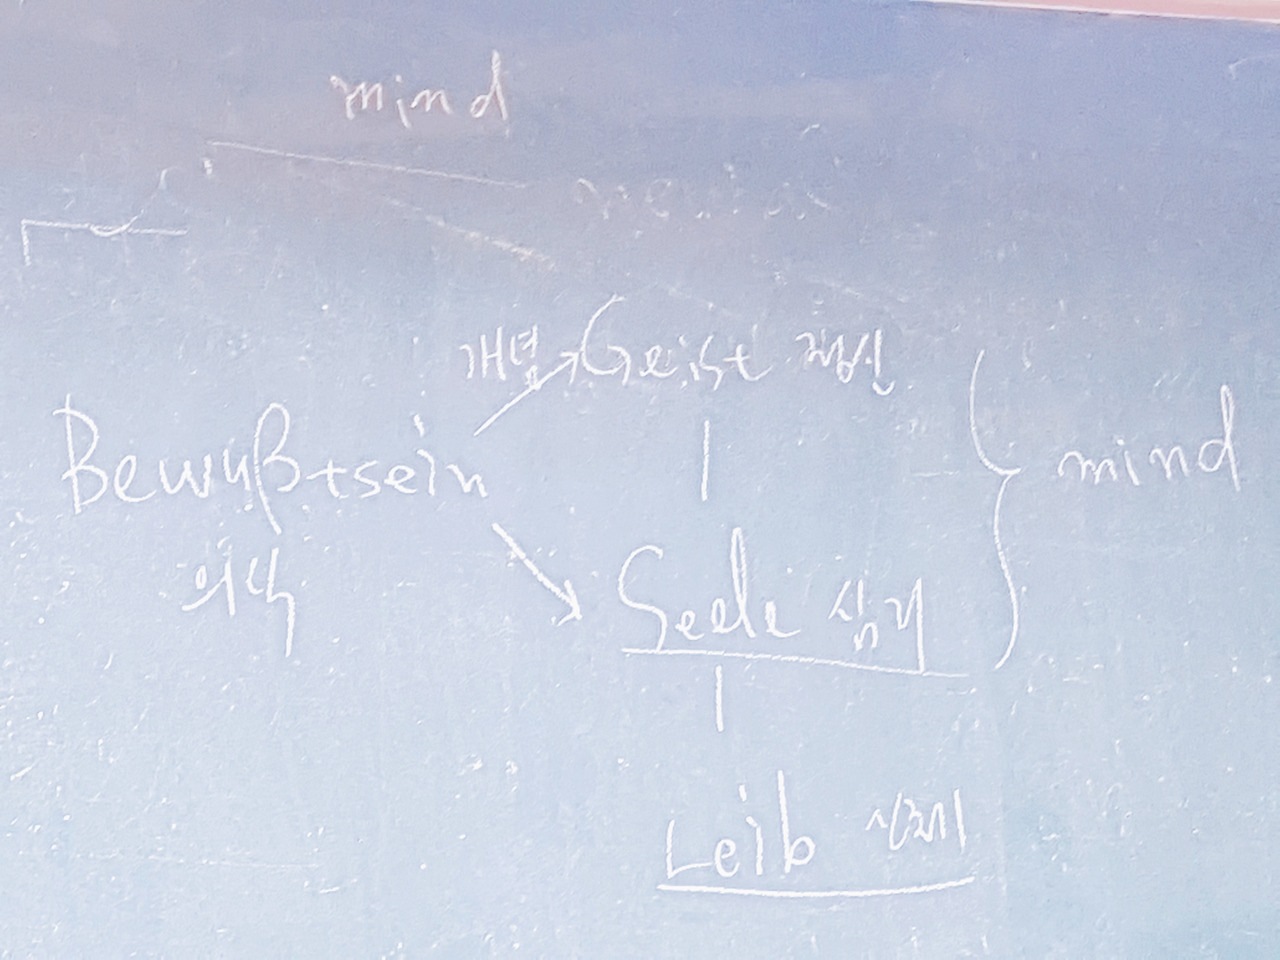 mind
개념 Geist 정신
Bewußtsein mind
의식
Seele 심리
Leib 신체